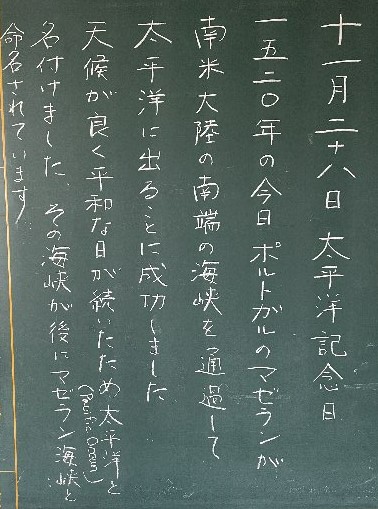 十一月二十八日 太平洋記念日
一五二〇年の今日ポルトガルのマゼランが
南米大陸の南端の海峡を通過して
太平洋に出ることに成功しました
天候が良く平和な日が続いたため太平洋と
(Pacific Ocean)
名付けました、その海峡が後にマゼラン海峡と
命名されています